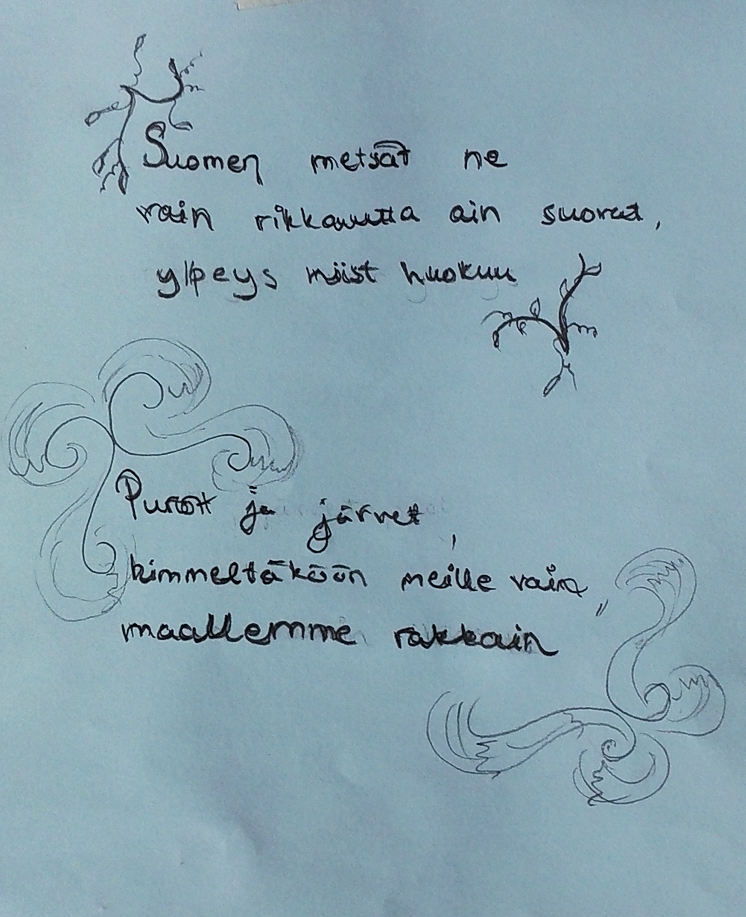 Suomen metsät ne
vain rikkautta ain suovat,
ylpeys niist huokuu
Purot ja järvet,
kimmeltäköön meille vain,
maallemme rakkain